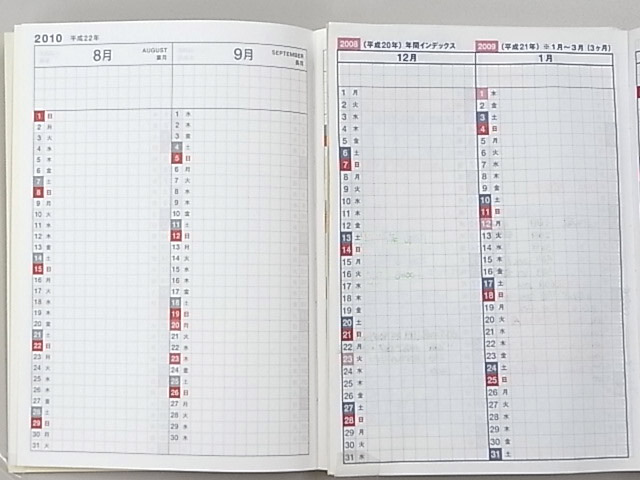 2010 平成22年
8月
AUGUST
葉月
1 日
2 月
3 火
4 水
5 木
6 金
7 土
8 日
9 月
10 火
11 水
12 木
13 金
14 土
15 日
16 月
17 火
18 水
19 木
20 金
21 土
22 日
23 月
24 火
25 水
26 木
27 金
28 土
29 日
30 月
31 火
9月
SEPTEMBER
長月
1 水
2 木
3 金
4 土
5 日
6 月
7 火
8 水
9 木
10 金
11 土
12 日
13 月
14 火
15 水
16 木
17 金
18 土
19 日
20 月
21 火
22 水
23 木
24 金
25 土
26 日
27 月
28 火
29 水
30 木
2008 (平成20年) 年間インデックス
12月
1 月
2 火
3 水
4 木
5 金
6 土
7 日
8 月
9 火
10 水
11 木
12 金
13 土
14 日
15 月
16 火
17 水
18 木
19 金
20 土
21 日
22 月
23 火
24 水
25 木
26 金
27 土
28 日
29 月
30 火
31 水
2009 (平成21年) ※1月〜3月 (3ヶ月)
1月
1 木
2 金
3 土
4 日
5 月
6 火
7 水
8 木
9 金
10 土
11 日
12 月
13 火
14 水
15 木
16 金
17 土
18 日
19 月
20 火
21 水
22 木
23 金
24 土
25 日
26 月
27 火
28 水
29 木
30 金
31 土